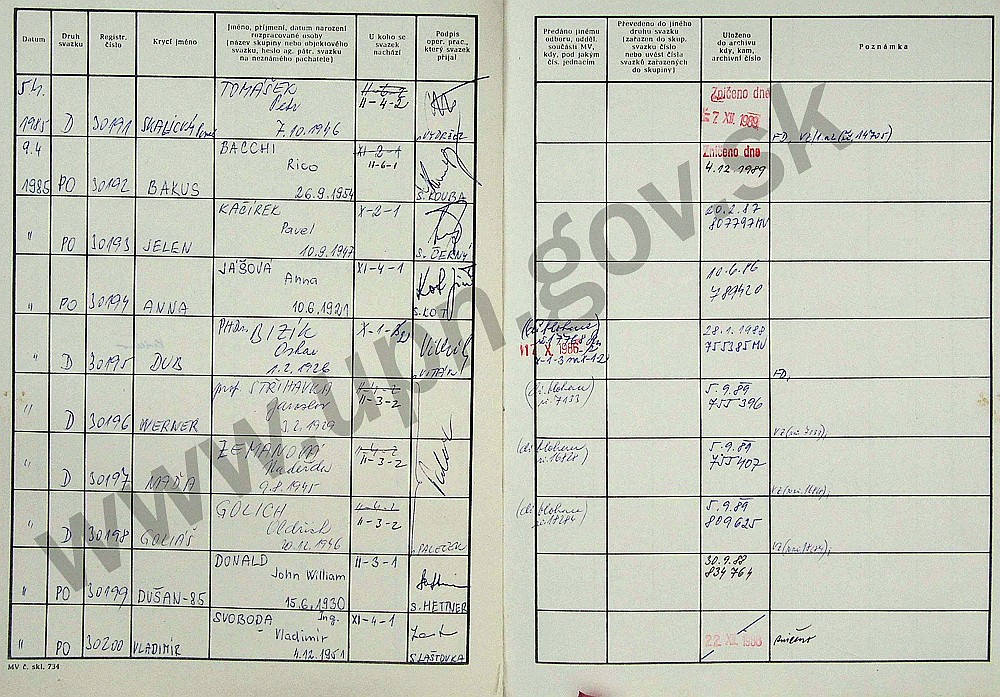 Datum
Druh svazku
Registr. číslo
Krycí jméno
Jméno, příjmení, datum narození
rozpracované osoby
(název skupiny nebo objektového
svazku, heslo ag. pátr. svazku
na neznámého pachatele)
U koho se
svazek
nachází
Podpis
oper. prac.,
který svazek
přijal
Předáno jinému
odboru, odděl.
součásti MV,
kdy, pod jakým
čís. jednacím
Převedeno do jiného
druhu svazku
(zařazen do skup.
svazku číslo
nebo uvést čísla
svazků zařazených
do skupiny)
Uloženo
do archivu
kdy, kam,
archivní číslo
Poznámka
TOMÁŠEK
Petr
1985 D 30191 SKALICKÝ 7.10.1946
II-4-2
Zničeno dne
7. XII. 1989
9.4 BACCHI XI-2-1
Rico II-6-1
1985 PO 30192 BAKUS 26.9.1954 S. KOUBA
Zničeno dne
4.12.1989
KAČÍREK X-2-1
" Pavel
PO 30193 JELEN 10.9.1947 S. ČERNÝ
20.2.87
807797MV
JÁŠOVÁ XI-4-1
" Anna
PO 30194 ANNA 10.6.1921 S. KOT
10.6.86
787420
PhDr. BIZÍK
" Oskar
D 30195 DUB 1.2.1926
17. X. 1986
28.1.1988
755285MV
FD,
prof. STŘIHAVKA II-4-2
" Jaroslav II-3-2
D 30196 WERNER 3.2.1929
5.9.89
755396
ZEMANOVÁ II-4-2
" Naděžda II-3-2
D 30197 MÁŠA 9.8.1945
5.9.89
755407
GOLICH
" Oldřich II-3-2
D 30198 GOLIÁŠ 20.12.1946 PALEČEK
5.9.89
809625
DONALD II-3-1
" John William
PO 30199 DUŠAN-85 15.6.1930 S. HETTNER
30.9.88
834764
SVOBODA Ing. XI-4-1
" Vladimír
PO 30200 VLADIMÍR 4.12.1951 S. LAŠTOVKA
22. XII. 1988
zničeno
MV č. skl. 734
www.upn.gov.sk